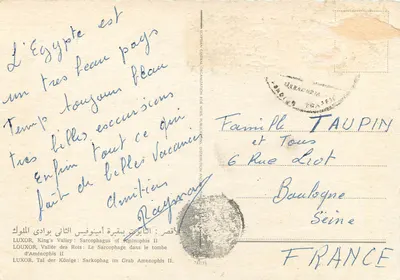 L'Egypte est
un tres beau pays
Temp toujours beau
tres belles excursions
Enfin tout ce qui
fait de belles vacances
Amitiés
Famille TAUPIN
et Tous
6 Rue Liot
Boulogne
Seine
FRANCE
LUXOR, King's Valley: Sarcophagus of Amenophis II
LOUXOR, Vallée des Rois: Le Sarcophage dans le tombe
d'Aménophis II
LUXOR, Tal der Könige: Sarkophag im Grab Amenophis II.